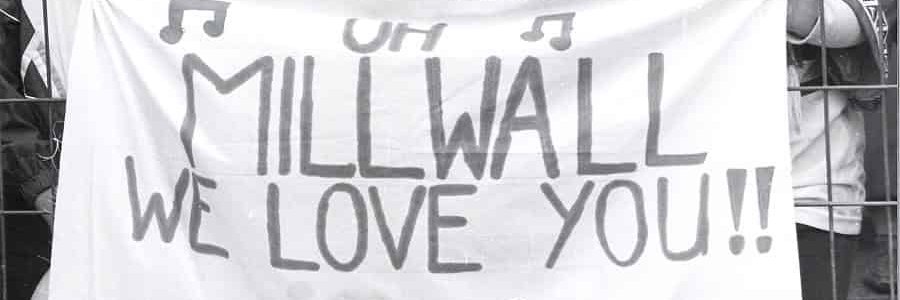 ♫ OH ♫
MILLWALL
WE LOVE YOU!!